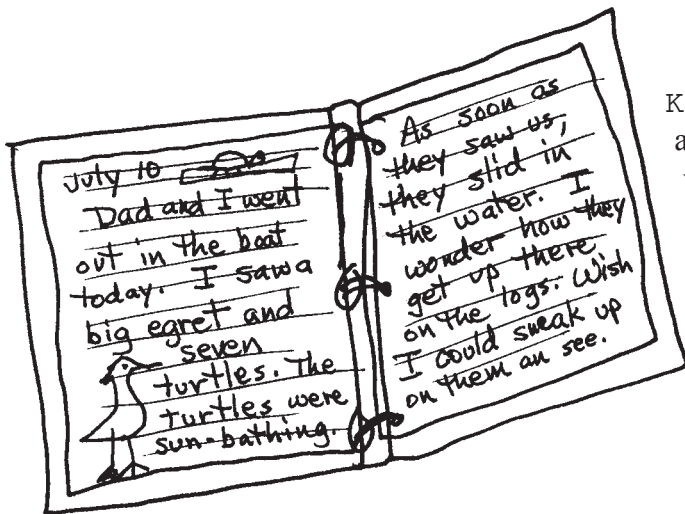 July 10
Dad and I went
out in the boat
today. I saw a
big egret and
seven
turtles. The
turtles were
sun-bathing.
As soon as
they saw us,
they slid in
the water. I
wonder how they
get up there
on the logs. Wish
I could sneak up
on them an see.
K
a